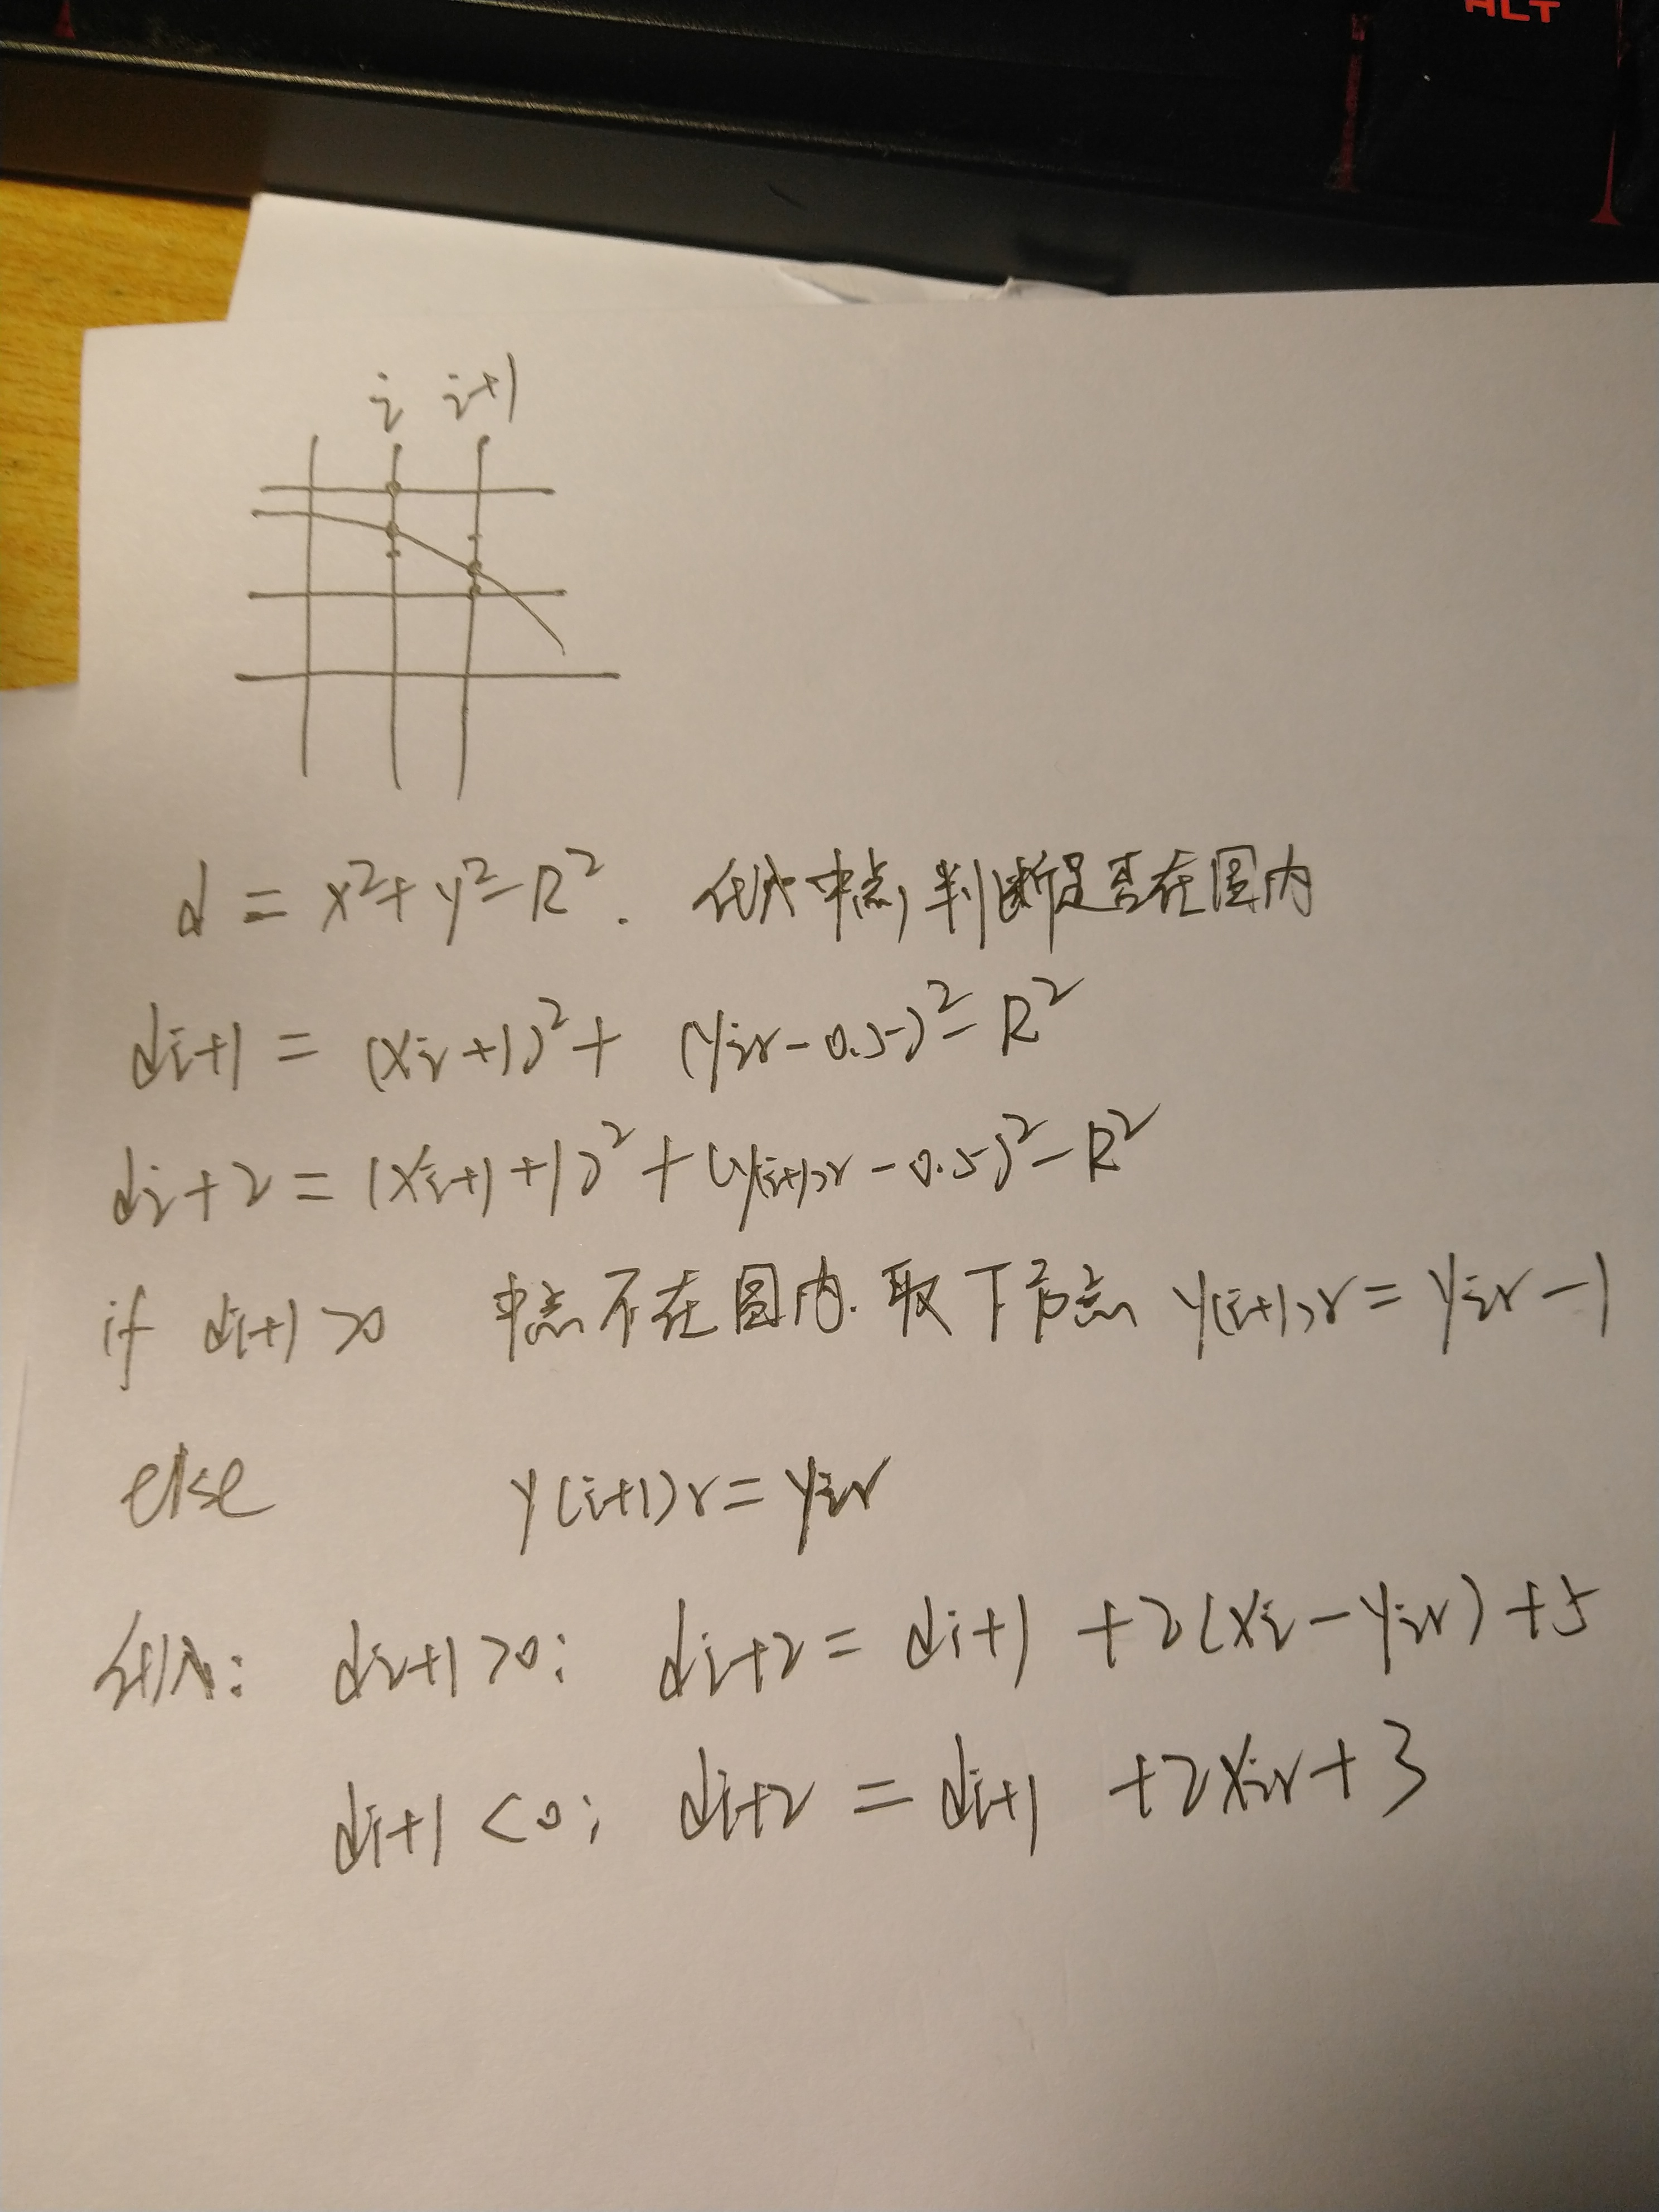 ALT
i i+1
d = x²+y²-R². 代入中点,判断是否在圆内
di+1 = (xi+1)²+ (yir-0.5)²-R²
di+2 = (xi+1+1)²+(y(i+1)r-0.5)²-R²
if di+1>0 中点不在圆内.取下方点 y(i+1)r=yir-1
else y(i+1)r=yir
代入: di+1>0: di+2= di+1 +2(xi-yir)+5
di+1<0: di+2 = di+1 +2xir+3